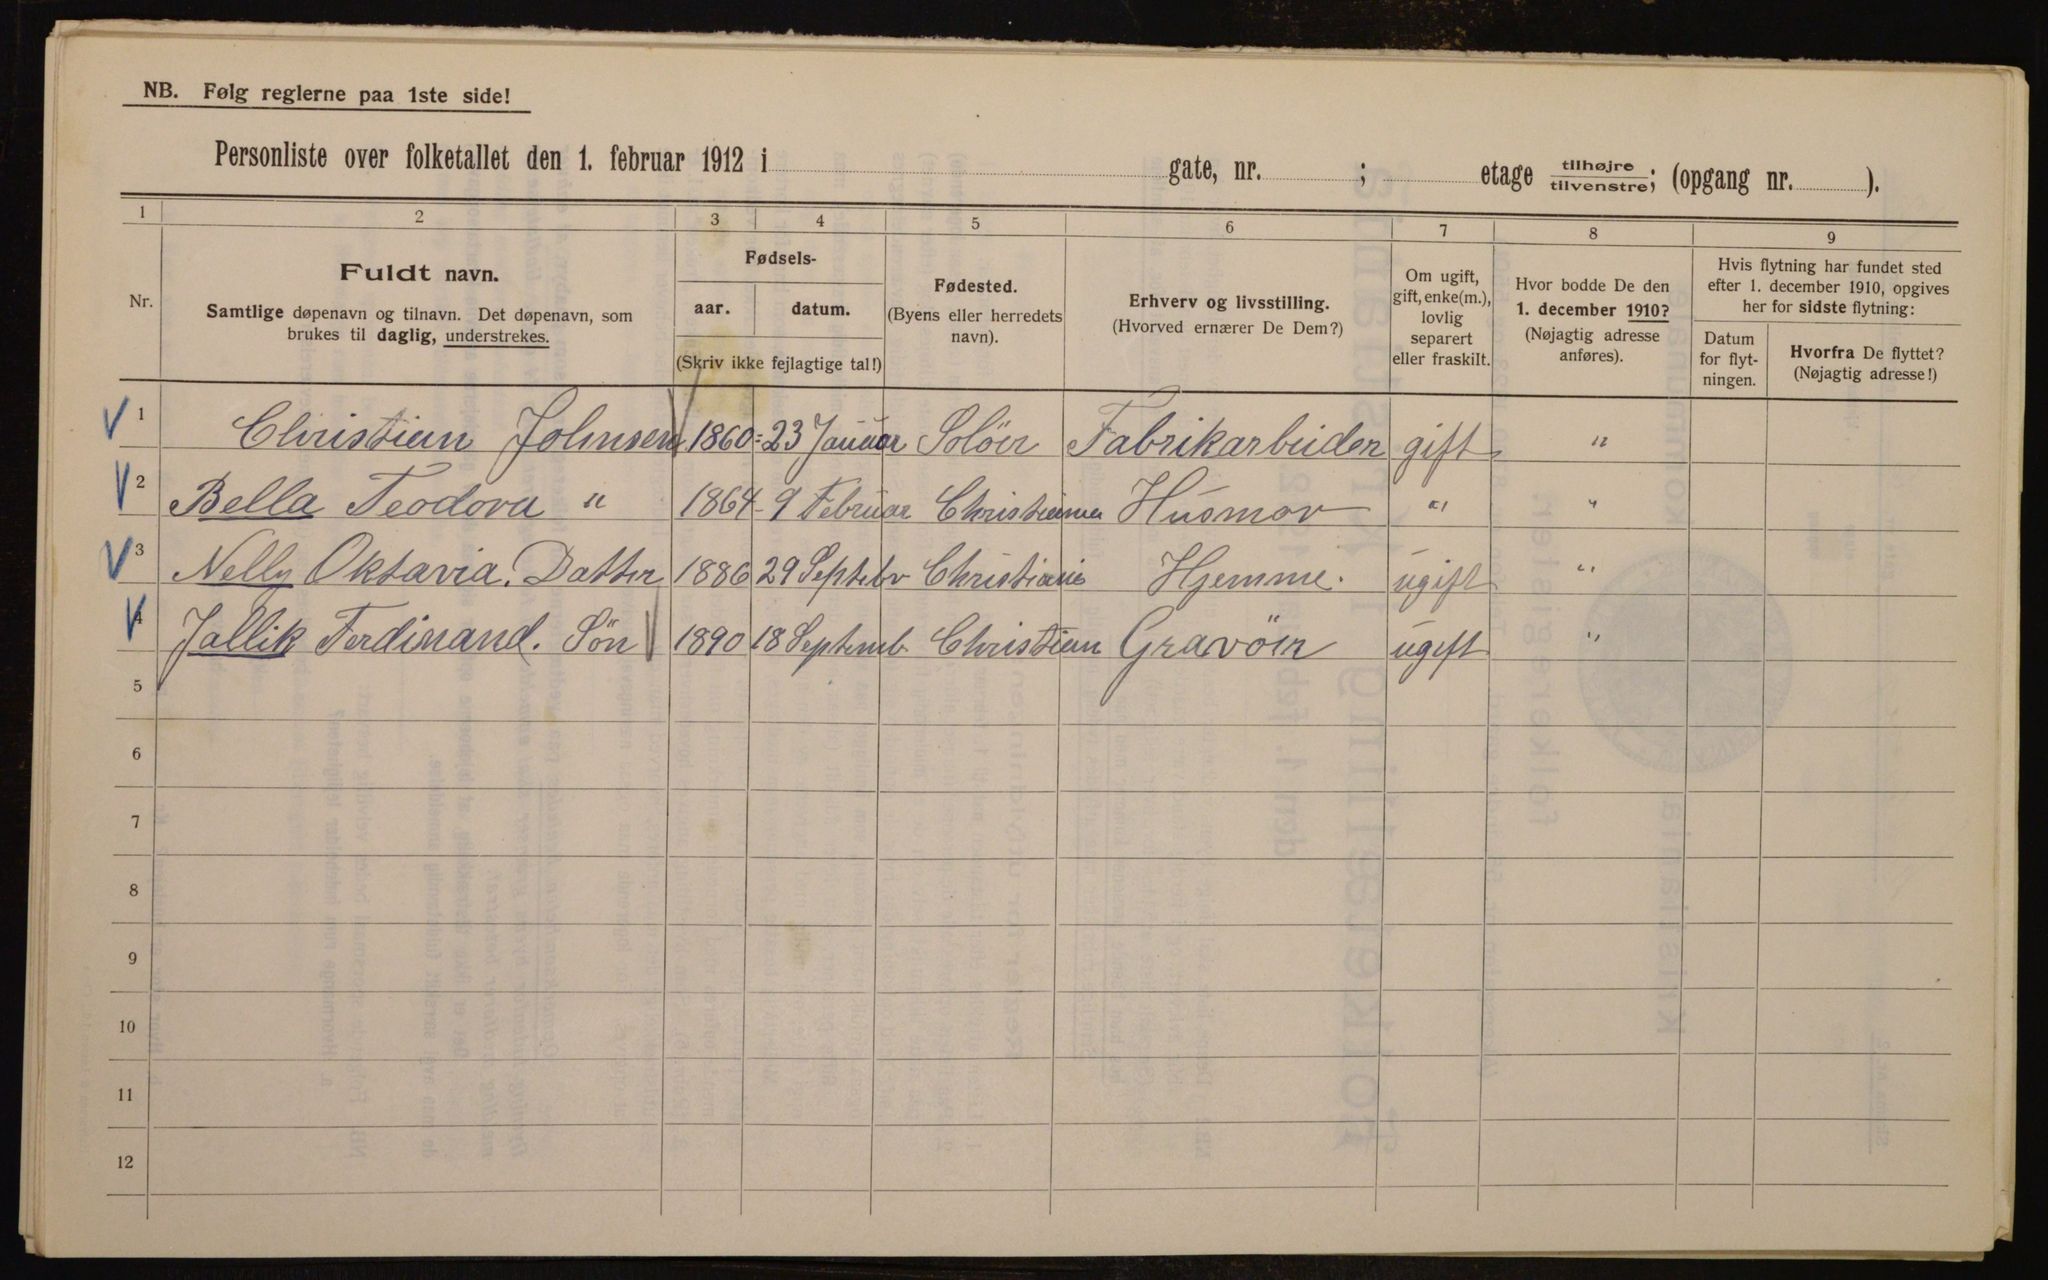 NB. Følg reglerne paa 1ste side!
Personliste over folketallet den 1. februar 1912 i gate, nr. ; etage tilhøjre/tilvenstre; (opgang nr. ).
1 2 3 4 5 6 7 8 9
Nr.
Fuldt navn.
Samtlige døpenavn og tilnavn. Det døpenavn, som
brukes til daglig, understrekes.
Fødsels-
aar. datum.
(Skriv ikke fejlagtige tal!)
Fødested.
(Byens eller herredets
navn).
Erhverv og livsstilling.
(Hvorved ernærer De Dem?)
Om ugift,
gift, enke(m.),
lovlig
separert
eller fraskilt.
Hvor bodde De den
1. december 1910?
(Nøjagtig adresse
anføres).
Hvis flytning har fundet sted
efter 1. december 1910, opgives
her for sidste flytning:
Datum
for flyt-
ningen.
Hvorfra De flyttet?
(Nøjagtig adresse!)
1 Christian Johnsen 1860 = 23 Januar Solöer Fabrikarbeider gift "
2 Bella Teodora " 1864 - 9 Februar Christiania Husmor " "
3 Nelly Oktavia. Datter 1886 29 Septebr Christiania Hjemme. ugift "
4 Jallik Ferdinand. Sön 1890 18 Septemb. Christian Gravöer ugift "
5
6
7
8
9
10
11
12